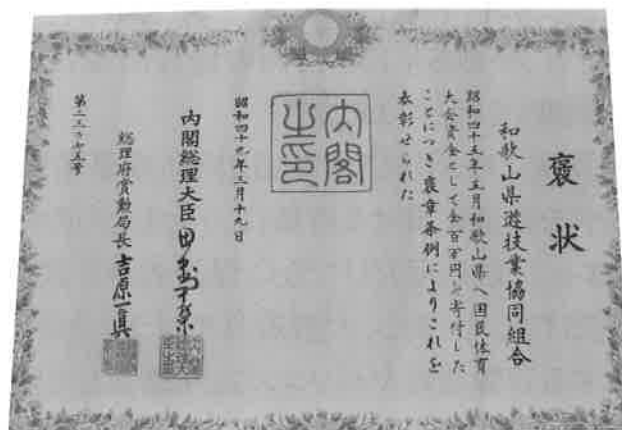 褒状
和歌山県遊技業協同組合
昭和四十五年五月和歌山県へ国民体育
大会資金として金百万円を寄付した
ことにつき褒章条例によりこれを
表彰せられた
昭和四十九年三月十九日
内閣之印
内閣総理大臣 田中角栄
総理府賞勲局長 吉原一眞